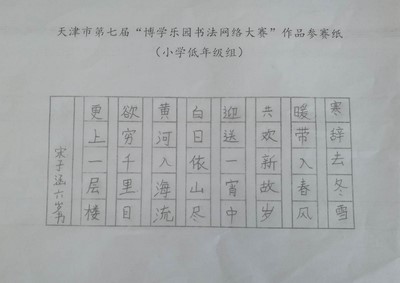 天津市第七届“博学乐园书法网络大赛”作品参赛纸
（小学低年级组）
寒辞去冬雪
暖带入春风
共欢新故岁
迎送一宵中
白日依山尽
黄河入海流
欲穷千里目
更上一层楼
宋子涵六岁书